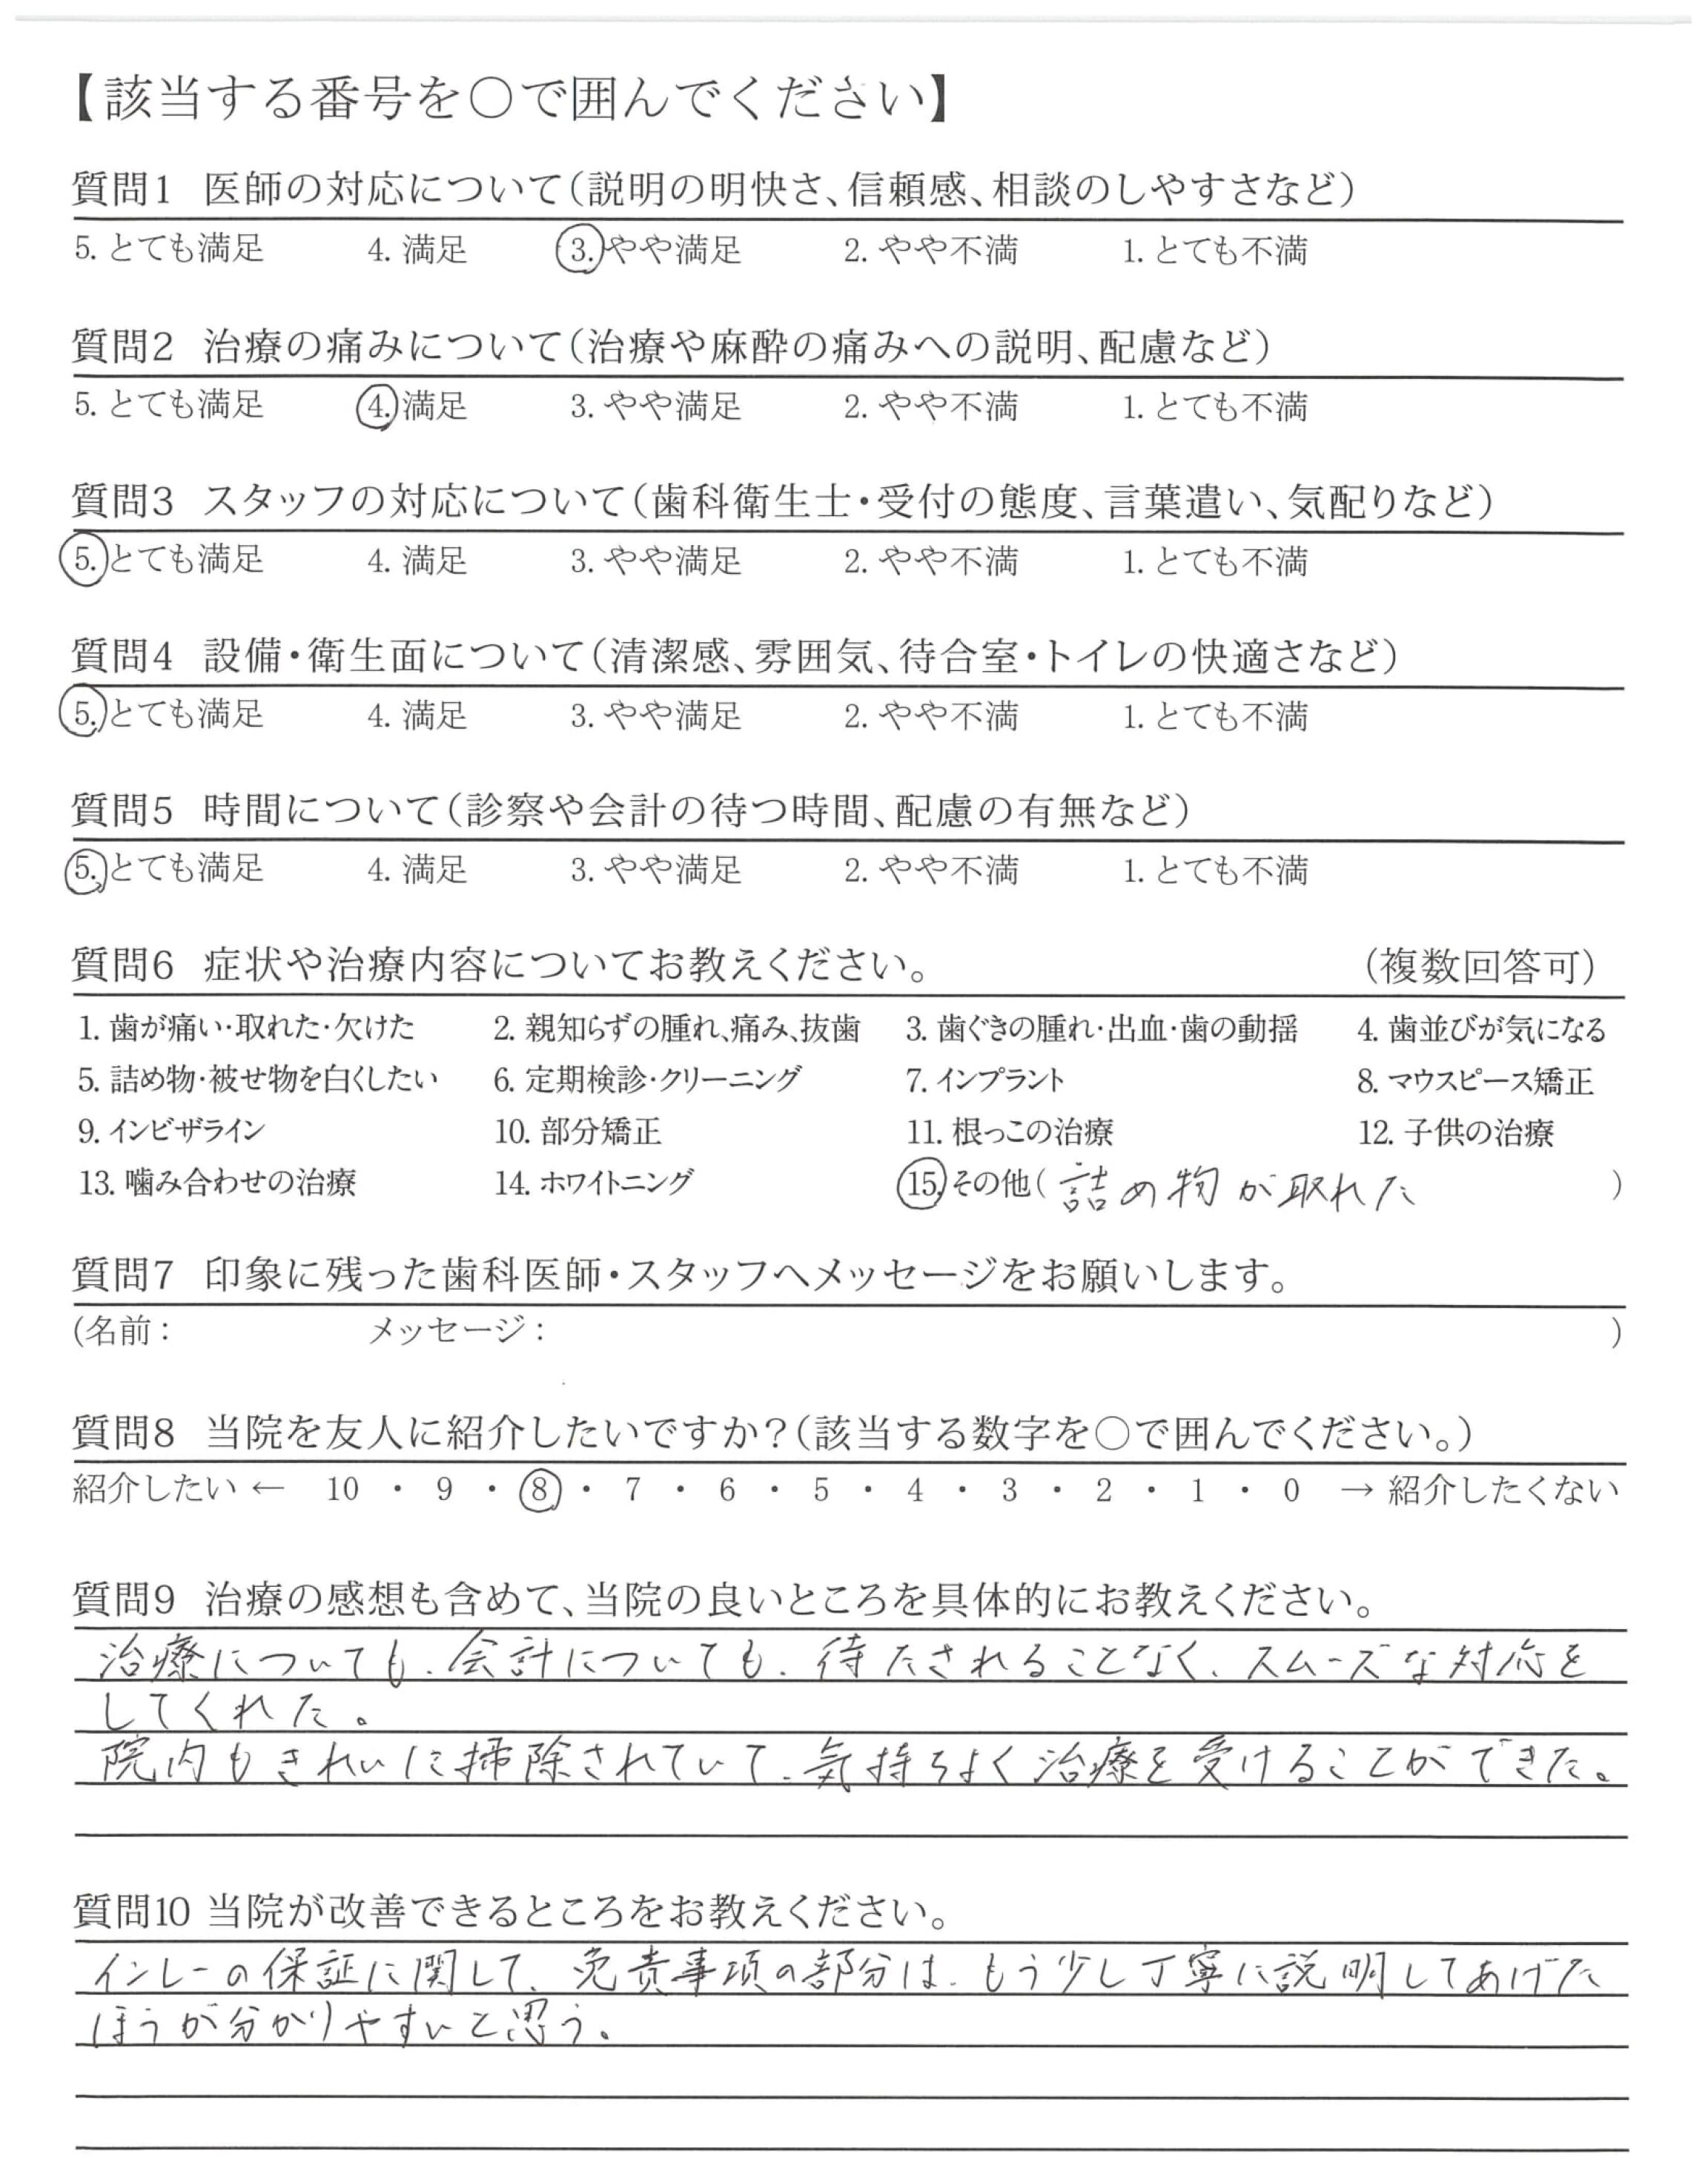 【該当する番号を〇で囲んでください】
質問1 医師の対応について(説明の明快さ、信頼感、相談のしやすさなど)
5. とても満足 4. 満足 3. やや満足 2. やや不満 1. とても不満
質問2 治療の痛みについて(治療や麻酔の痛みへの説明、配慮など)
5. とても満足 4. 満足 3. やや満足 2. やや不満 1. とても不満
質問3 スタッフの対応について(歯科衛生士・受付の態度、言葉遣い、気配りなど)
5. とても満足 4. 満足 3. やや満足 2. やや不満 1. とても不満
質問4 設備・衛生面について(清潔感、雰囲気、待合室・トイレの快適さなど)
5. とても満足 4. 満足 3. やや満足 2. やや不満 1. とても不満
質問5 時間について(診察や会計の待つ時間、配慮の有無など)
5. とても満足 4. 満足 3. やや満足 2. やや不満 1. とても不満
質問6 症状や治療内容についてお教えください。 (複数回答可)
1. 歯が痛い・取れた・欠けた 2. 親知らずの腫れ、痛み、抜歯 3. 歯ぐきの腫れ・出血・歯の動揺 4. 歯並びが気になる
5. 詰め物・被せ物を白くしたい 6. 定期検診・クリーニング 7. インプラント 8. マウスピース矯正
9. インビザライン 10. 部分矯正 11. 根っこの治療 12. 子供の治療
13. 噛み合わせの治療 14. ホワイトニング 15. その他( 詰め物が取れた )
質問7 印象に残った歯科医師・スタッフへメッセージをお願いします。
(名前: メッセージ: )
質問8 当院を友人に紹介したいですか?(該当する数字を〇で囲んでください。)
紹介したい ← 10 ・ 9 ・ 8 ・ 7 ・ 6 ・ 5 ・ 4 ・ 3 ・ 2 ・ 1 ・ 0 → 紹介したくない
質問9 治療の感想も含めて、当院の良いところを具体的にお教えください。
治療についても、会計についても、待たされることなく、スムーズな対応を
してくれた。
院内もきれいに掃除されていて、気持ちよく治療を受けることができた。
質問10 当院が改善できるところをお教えください。
インレーの保証に関して、免責事項の部分は、もう少し丁寧に説明してあげた
ほうが分かりやすいと思う。